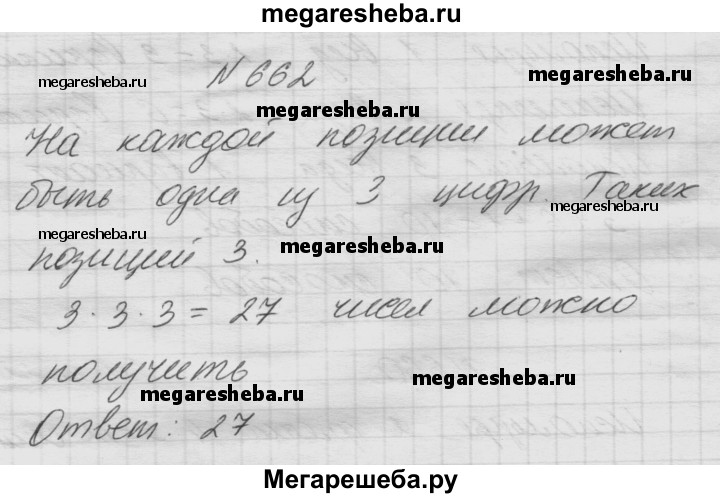 megaresheba.ru
№ 662
megaresheba.ru
megaresheba.ru
megaresheba.ru
На каждой позиции может
быть одна из 3 цифр. Таких
megaresheba.ru
megaresheba.ru
megaresheba.ru
позиций 3.
3 · 3 · 3 = 27 чисел можно
получить
megaresheba.ru
megaresheba.ru
Ответ: 27
Мегарешеба.ру